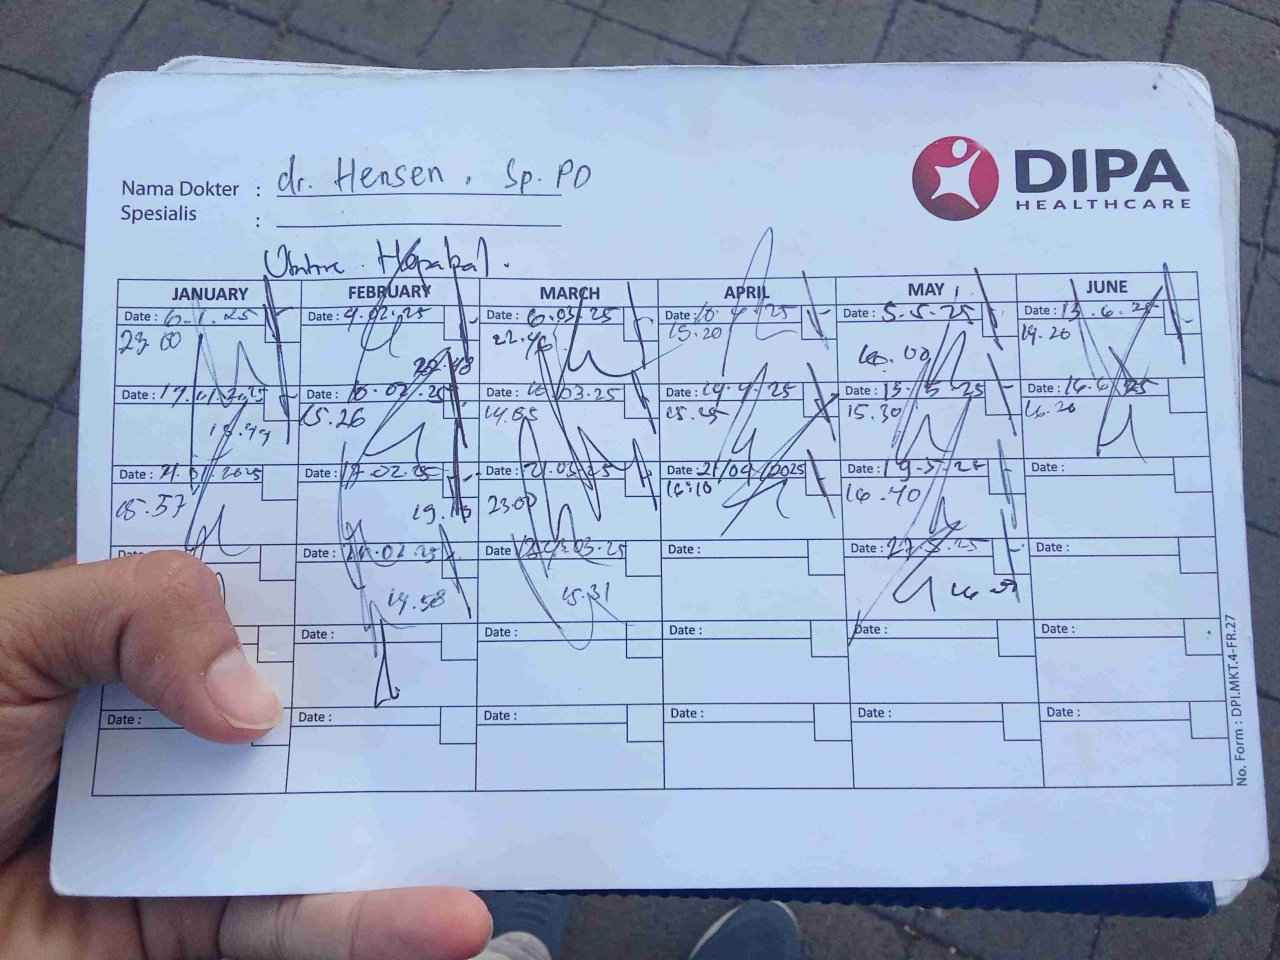 DIPA
HEALTHCARE
Nama Dokter : dr. Hensen, Sp. PD
Spesialis :
JANUARY FEBRUARY MARCH APRIL MAY JUNE
Date : 6.1.25 Date : 4.02.25 Date : 6.03.25 Date : 10.4.25 Date : 5.5.25 Date : 13.6.25
23.00 22.48 22.46 15.20 16.00 19.20
Date : 17.01.2025 Date : 10.02.25 Date : Date : 14.4.25 Date : Date :
15.26 15.30 16.20
Date : 21.01.2025 Date : 17.02.25 Date : 21.03.25 Date : 21/04/2025 Date : 19.5.25 Date :
15.57 23.00 16:10 16.40
Date : Date : 24.03.25 Date : Date : 27.5.25 Date :
14.58 15.31
Date : Date : Date : Date : Date :
Date : Date : Date : Date : Date : Date :
No. Form : DPI.MKT.4-FR.27